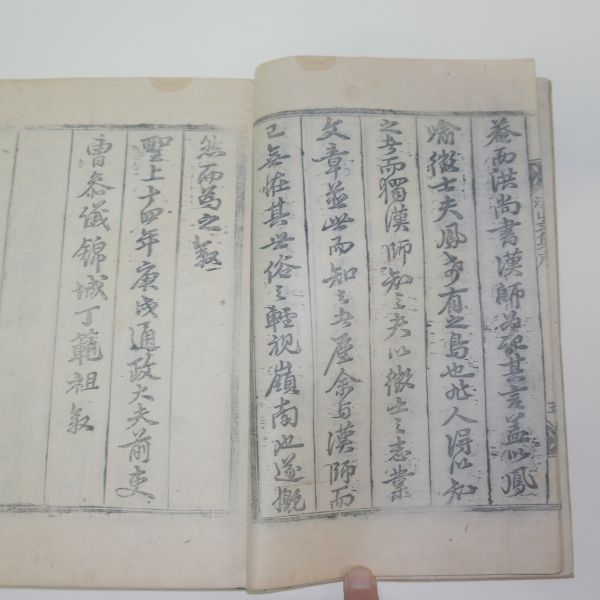 蒼而洪尚書漢師為誌其言蓋以鳳
喻徵士夫鳳希有之鳥也非人得以知
之者而獨漢師知之夫以徵士之志業
文章並世而知之者屢余與漢師而
已無恠其世俗之輕視嶺南也遂慨
然而為之敘
聖上十四年庚戌通政大夫前吏
曹叅儀錦城丁範祖敘